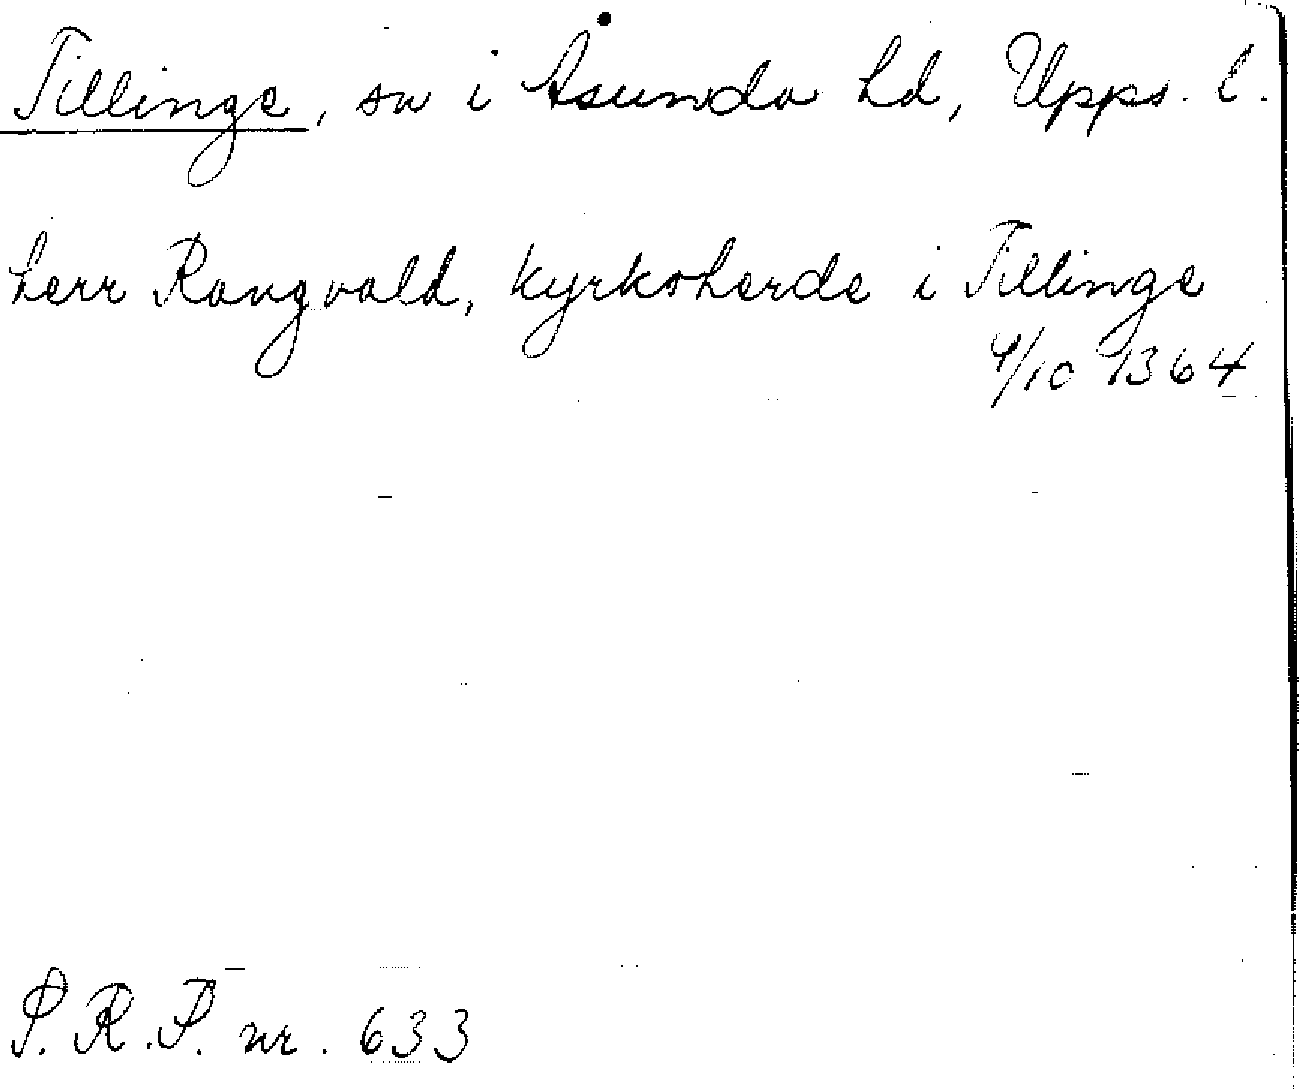 Tillinge, sn i Åsunda hd, Upps. l.
herr Rangvald, kyrkoherde i Tillinge
4/10 1364
S.R.P. nr. 633